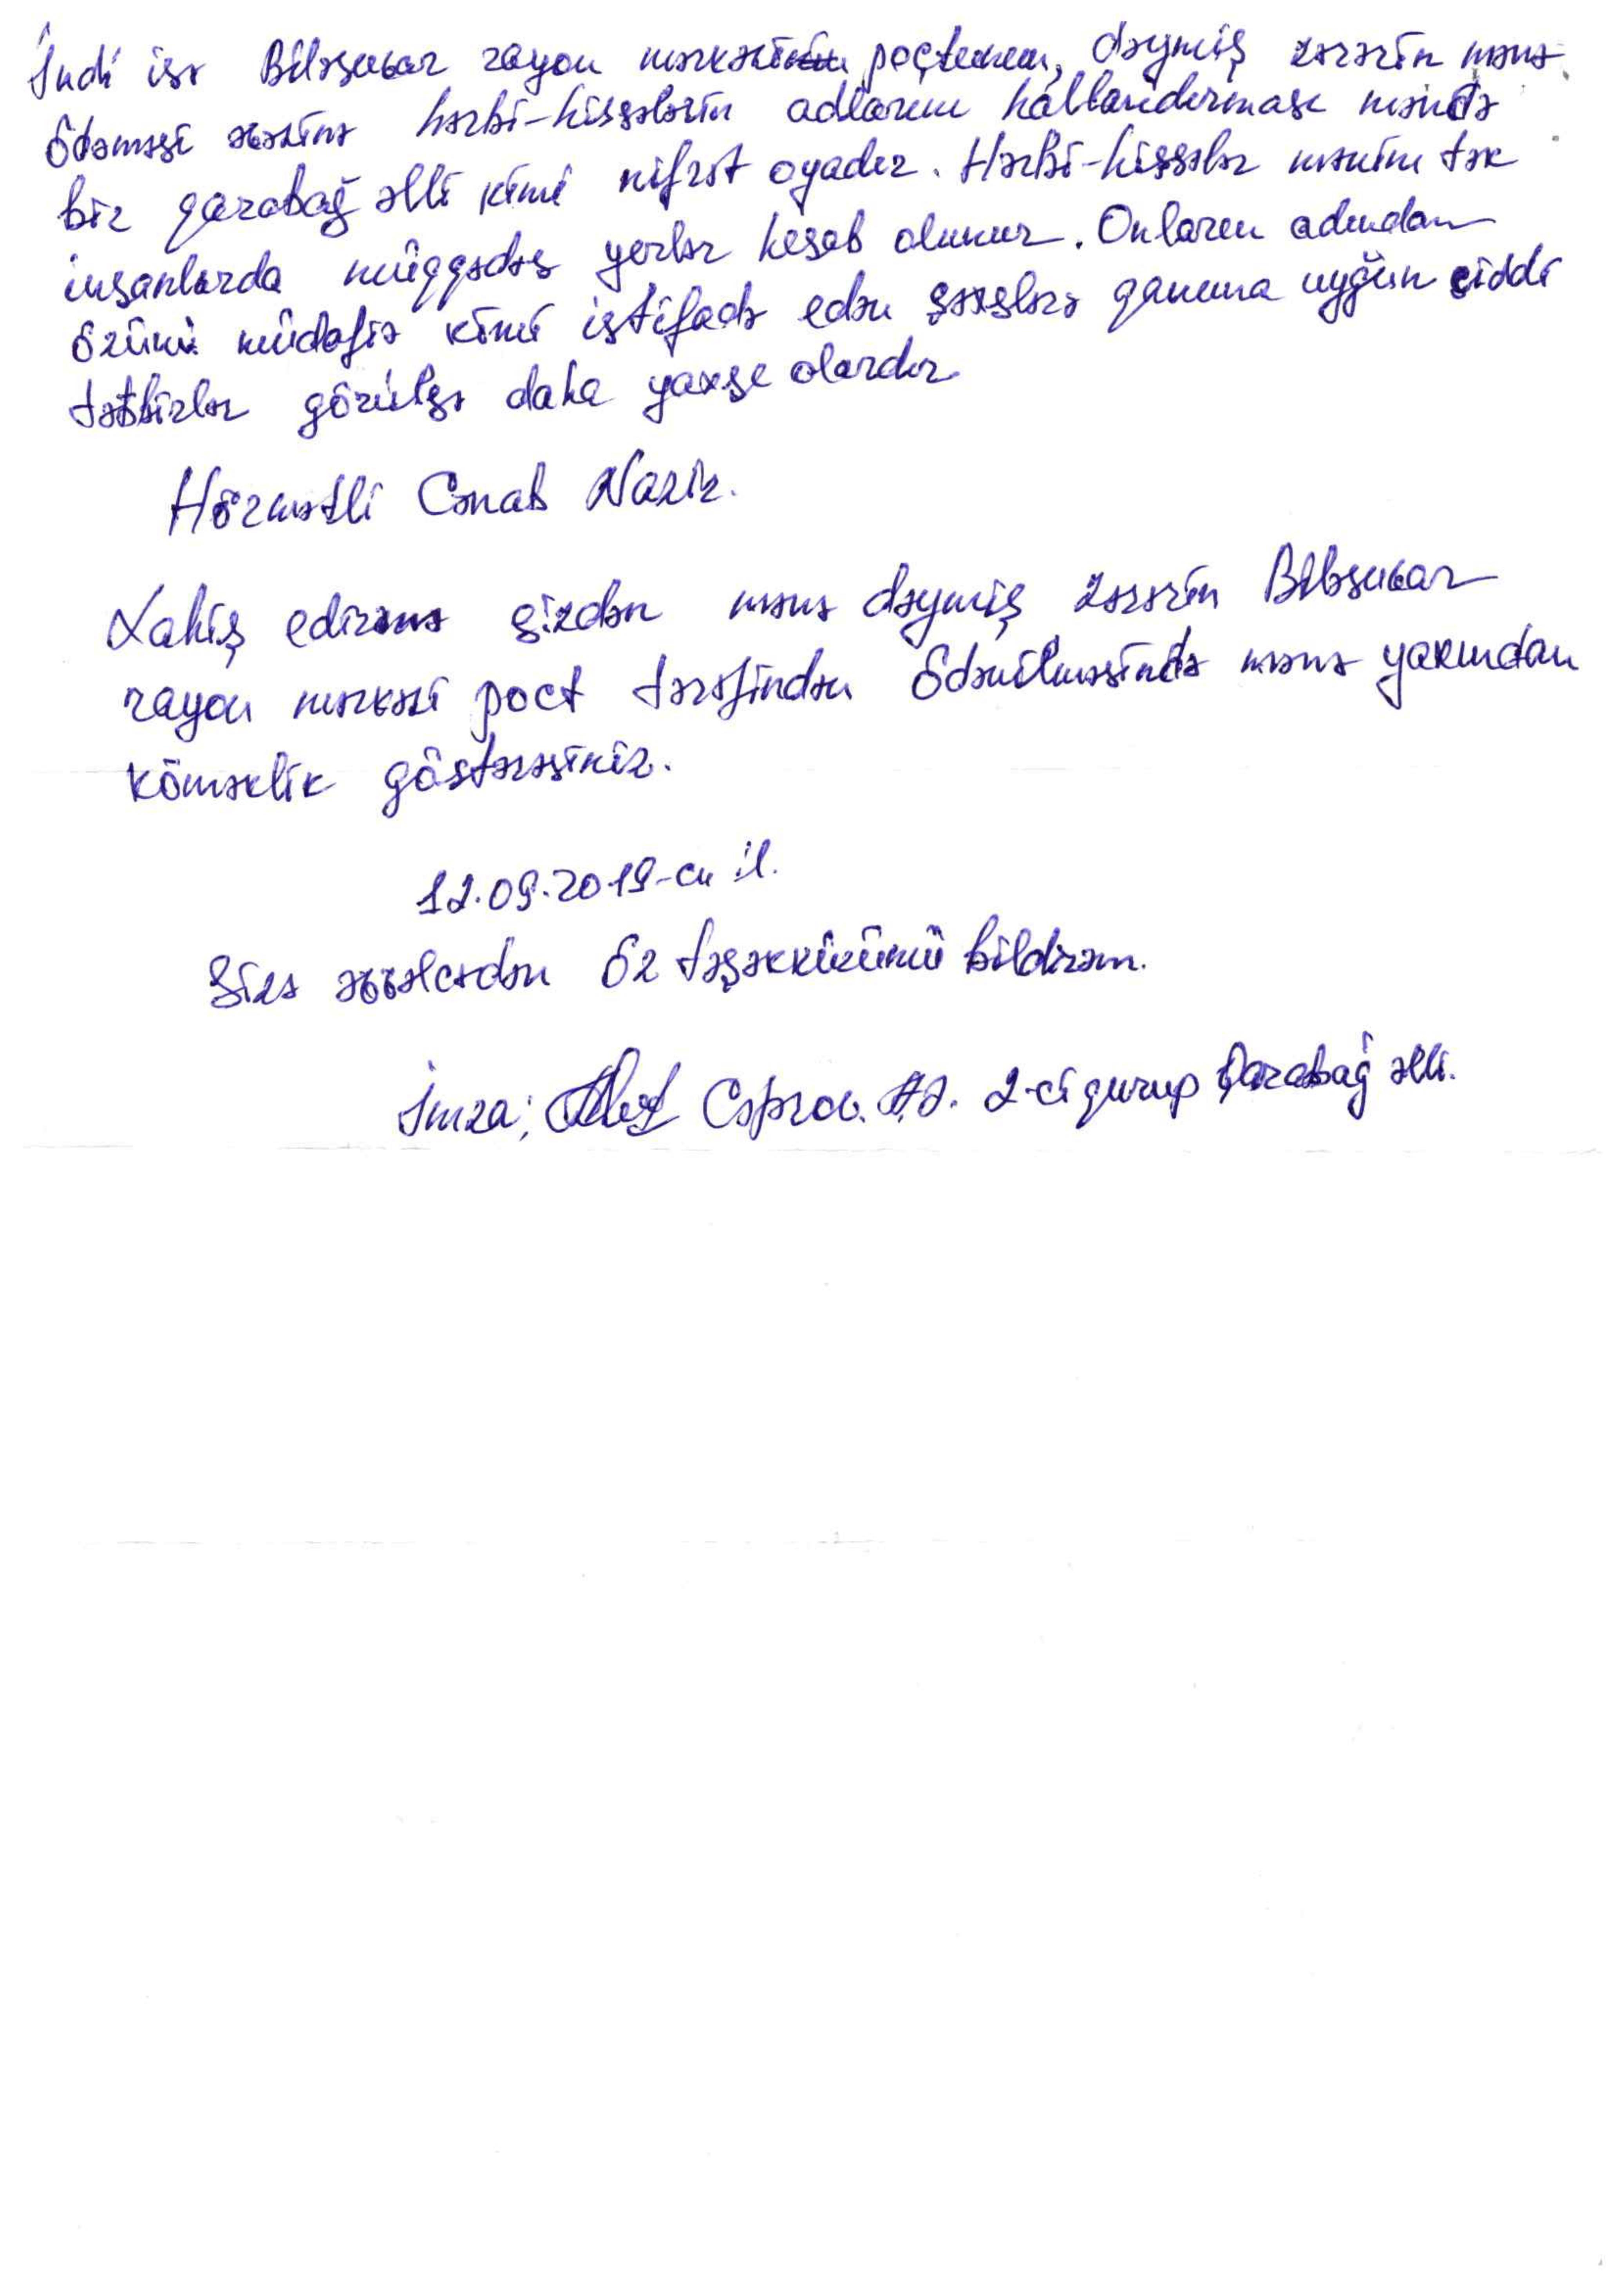 İndi isə Biləsuvar rayon mərkəzi poçtunun, dəymiş zərərin mənə
ödəməsi əvəzinə hərbi-hissələrin adlarını hallandırması məndə
bir qarabağ əlli kimi nifrət oyadır. Hərbi-hissələr mənim tək
insanlarda müqqədəs yerlər hesab olunur. Onların adından
özünü müdafiə kimi istifadə edən şəxslərə qanuna uyğun ciddi
tətbirlər görülsə daha yaxşı olardır
Hörmətli Cənab Nazir.
Xahiş edirəm sizdən mənə dəymiş zərərin Biləsuvar
rayon mərkəzi poct tərəfindən ödənilməsində mənə yaxından
köməklik göstərəsiniz.
12.09.2019-cu il.
Sizə əvvəlcədən öz təşəkkürümü bildirəm.
İmza: Cəfrov. A.Ə. 2-ci qurup Qarabağ əlli.